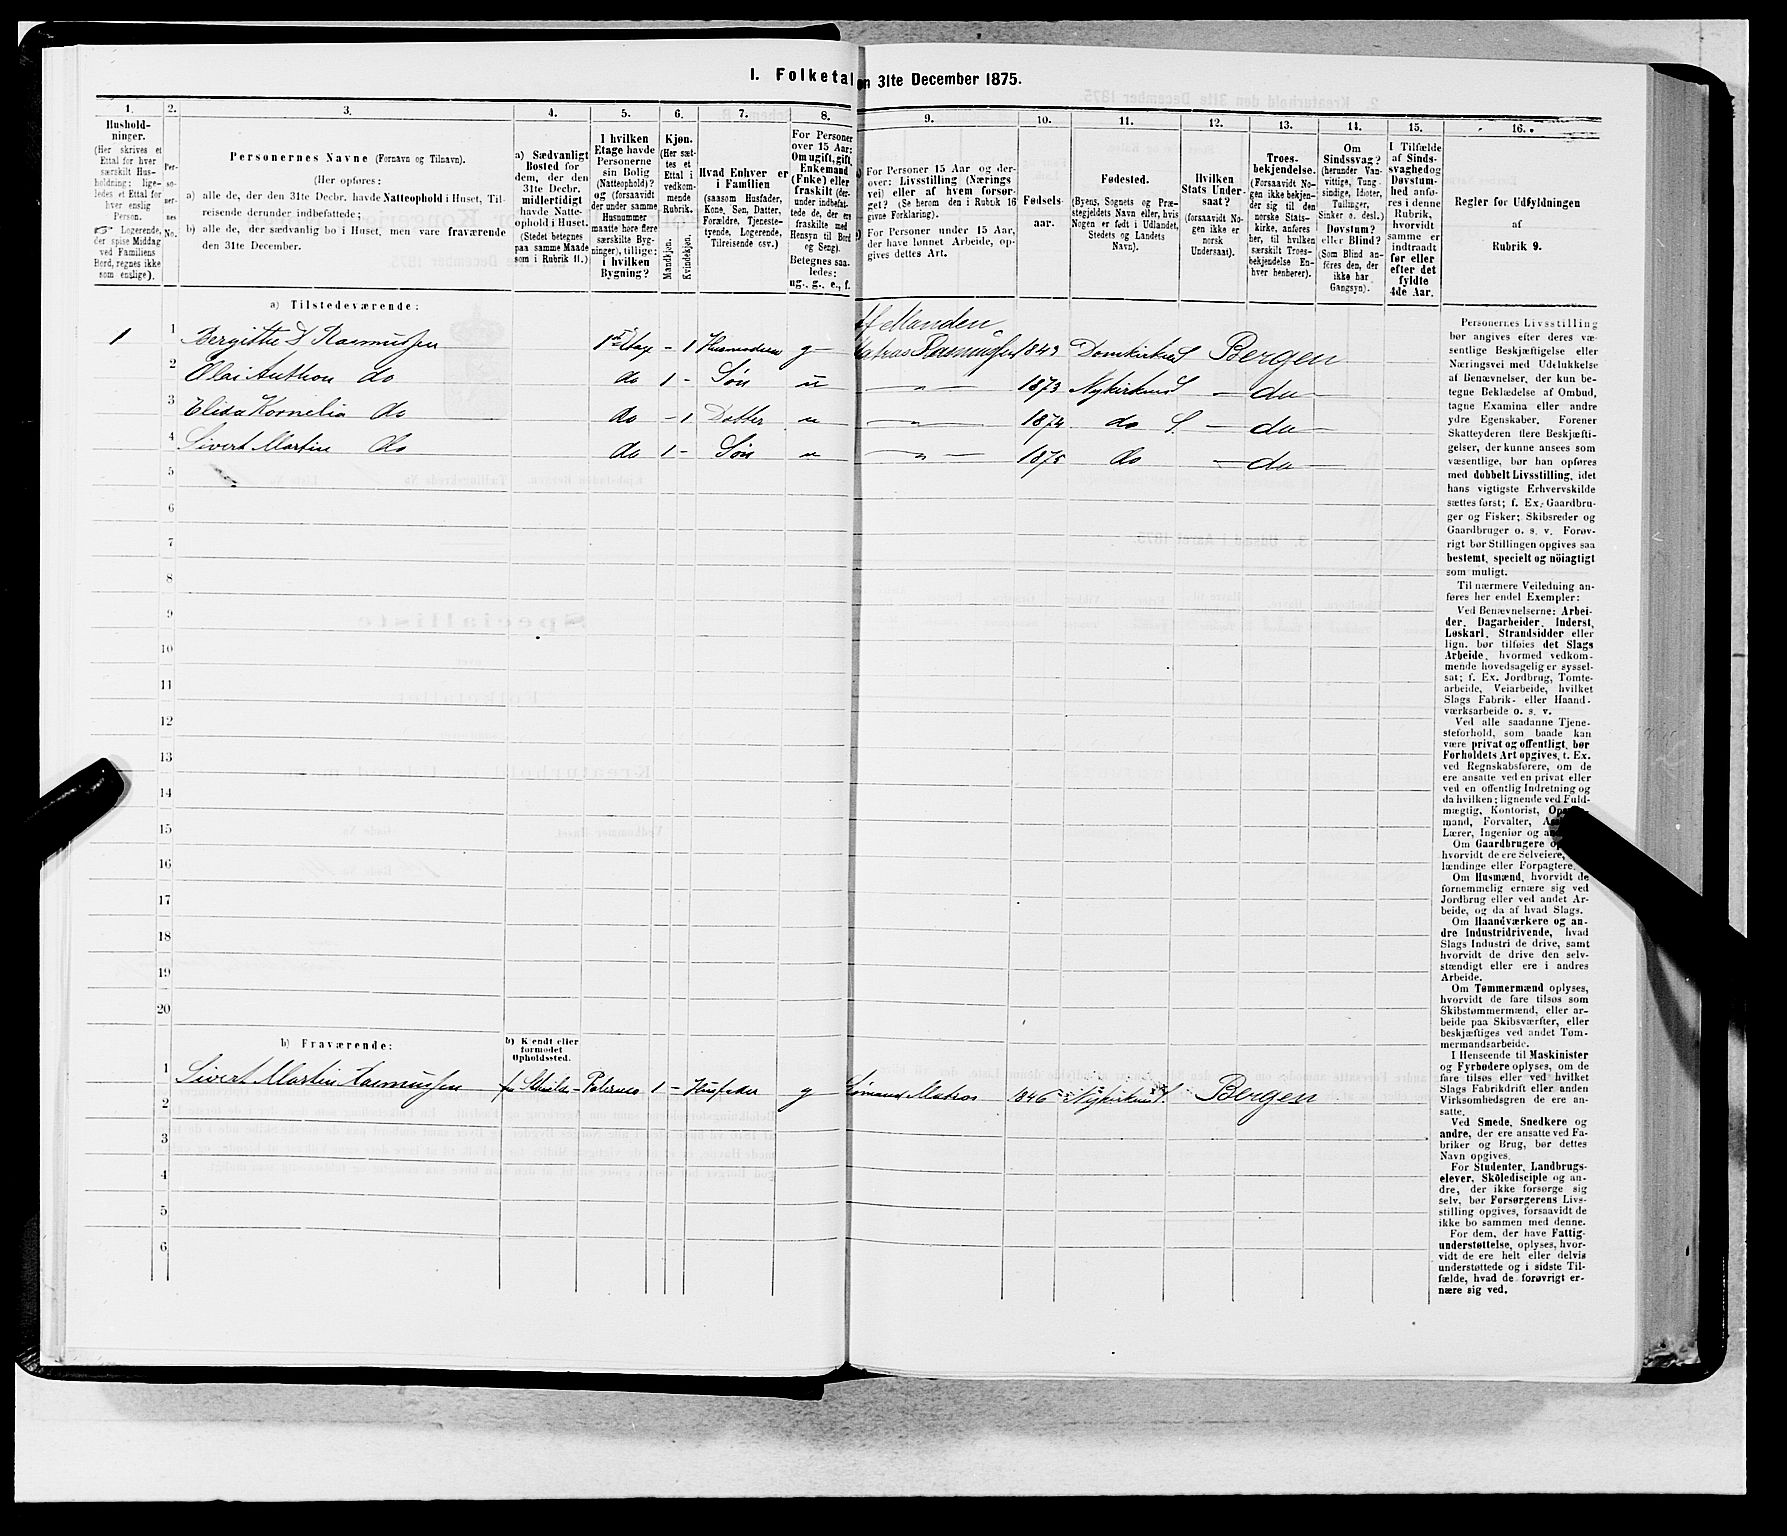 I. Folketal
en 31te December 1875.
1. 2. 3. 4. 5. 6. 7. 8. 9. 10. 11. 12. 13. 14. 15. 16.
Hushold-
ninger.
(Her skrives et
Ettal for hver
særskilt Hus-
holdning; lige-
ledes et Ettal for
hver enslig
Person.
Logerende,
der spise Middag
ved Familiens
Bord, regnes ikke
som enslige).
Per-
so-
ner-
nes
No.
Personernes Navne (Fornavn og Tilnavn).
(Her opføres:
a) alle de, der den 31te Decbr. havde Natteophold i Huset, Til-
reisende derunder indbefattede;
b) alle de, der sædvanlig bo i Huset, men vare fraværende
den 31te December.
a) Sædvanligt
Bosted for
dem, der den
31te Decbr.
midlertidigt
havde Natte-
ophold i Huset.
(Stedet betegnes
paa samme Maade
som i Rubrik 11.)
I hvilken
Etage havde
Personerne
sin Bolig
(Natteophold)?
og (forsaavidt
der under samme
Husnummer
maatte høre flere
særskilte Byg-
ninger), tillige:
i hvilken
Bygning?
Kjøn.
(Her sæt-
tes et
Ettal i
vedkom-
mende
Rubrik.
Mandkjøn.
Kvindekjøn.
Hvad Enhver er
i Familien
(saasom Husfader,
Kone, Søn, Datter,
Forældre, Tjeneste-
tyende, Logerende,
Tilreisende osv.)
For Personer
over 15 Aar:
Om ugift, gift,
Enkemand
(Enke) eller
fraskilt (der-
under indbefat-
tede de, der ere
fraskilte med
Hensyn til Bord
og Seng).
Betegnes saa-
ledes:
ug., g., e., f.
For Personer 15 Aar og der-
over: Livsstilling (Nærings
vei) eller af hvem forsør-
get? (Se herom den i Rubrik 16
givne Forklaring).
For Personer under 15 Aar,
der have lønnet Arbeide, op-
gives dettes Art.
Fødsels-
aar.
Fødested.
(Byens, Sognets og Præ-
stegjeldets Navn eller, hvis
Nogen er født i Udlandet,
Stedets og Landets
Navn).
Hvilken
Stats Under-
saat?
(forsaavidt No-
gen ikke er
norsk
Undersaat).
Troes-
bekjendelse.
(Forsaavidt No-
gen ikke bekjen-
der sig til den
norske Stats-
kirke, anføres
her, til hvilken
særskilt Troes-
bekjendelse En-
hver henhører).
Om
Sindssvag?
(herunder Van-
vittige, Tung-
sindige, Idioter,
Tullinger,
Sinker o. desl.)
Døvstum?
eller Blind?
(Som Blind an-
føres den, der
ikke har
Gangsyn).
I Tilfælde
af Sinds-
svaghed og
Døvstum-
hed anfø-
res i denne
Rubrik,
hvorvidt
samme er
indtraadt
før eller
efter det
fyldte
4de Aar.
Regler for Udfyldningen
af
Rubrik 9.
a) Tilstedeværende:
Af Manden
1 1 Bergitte S Rasmussen 1ste Etage - 1 Husmoder g Matros Rasmussen 1849 Domkirkens S Bergen
2 Olai Anthon do do 1 - Søn u -"- 1873 Nykirkens S - do -
3 Elida Kornelia do do - 1 Datter u -"- 1874 do S. - do -
4 Sivert Martin do do 1 - Søn u -"- 1875 do - do -
5
6
7
8
9
10
11
12
13
14
15
16
17
18
19
20
b) Fraværende:
b) Kjendt eller
formodet
Opholdssted.
1 Sivert Martin Rasmussen 1 - Husfader g Sømand Matros 1846 Nykirkens S. Bergen
2
3
4
5
6
Personernes Livsstilling
bør angives efter deres væ-
sentlige Beskjæftigelse eller
Næringsvei med Udelukkelse
af Benævnelser, der kun be-
tegne Beklædelse af Ombud,
tagne Examina eller andre
ydre Egenskaber. Forener
Skatteyderen flere Beskjæfti-
gelser, der kunne ansees som
væsentlige, bør han opføres
med dobbelt Livsstilling, idet
hans vigtigste Erhvervskilde
sættes først; f. Ex. Gaardbru-
ger og Fisker; Skibsreder og
Gaardbruger o. s. v. Forøv-
rigt bør Stillingen opgives saa
bestemt, specielt og nöiagtigt
som muligt.
Til nærmere Veiledning an-
føres her endel Exempler:
Ved Benævnelserne: Arbei-
der, Dagarbeider, Inderst,
Løskarl, Strandsidder eller
lign. bør tilføies det Slags
Arbeide, hvormed vedkom-
mende hovedsagelig er syssel-
sat; f. Ex. Jordbrug, Tomte-
arbeide, Veiarbeide, hvilket
Slags Fabrik- eller Haand-
værksarbeide o. s. v.
Ved alle saadanne Tjene-
steforhold, som baade kan
være privat og offentligt, bør
Forholdets Art opgives, t. Ex.
ved Regnskabsførere, om de
ere ansatte ved en privat eller
ved en offentlig Indretning og
da hvilken; lignende ved Fuld-
mægtig, Kontorist,
mand, Forvalter,
Lærer, Ingeniør og
Om Gaardbrugere
hvorvidt de ere Selveiere,
lændinge eller Forpagtere.
Om Husmænd, hvorvidt de
fornemmelig ernære sig ved
Jordbrug eller ved andet Ar-
beide, og da af hvad Slags.
Om Haandværkere og an-
dre Industridrivende, hvad
Slags Industri de drive, samt
hvorvidt de drive den selv-
stændigt eller ere i andres
Arbeide.
Om Tømmermænd oplyses,
hvorvidt de fare tilsøs som
Skibstømmermænd, eller ar-
beide paa Skibsværfter, eller
beskjæftiges ved andet Tøm-
mermandsarbeide.
I Henseende til Maskinister
og Fyrbødere oplyses, om de
fare tilsøs eller ved hvilket
Slags Fabrikdrift eller anden
Virksomhedsgren de ere an-
satte.
Ved Smede, Snedkere og
andre, der ere ansatte ved Fa-
briker og Brug, bør dettes
Navn opgives.
For Studenter, Landbrugs-
elever, Skôledisciple og an-
dre, der ikke forsørge sig
selv, bør Forsørgerens Livs-
stilling opgives, forsaavidt de
ikke bo sammen med denne.
For dem, der have Fattig-
understøttelse, oplyses, hvor-
vidt de ere helt eller delvis
understøttede og i sidste Til-
fælde, hvad de forøvrigt er-
nære sig ved.